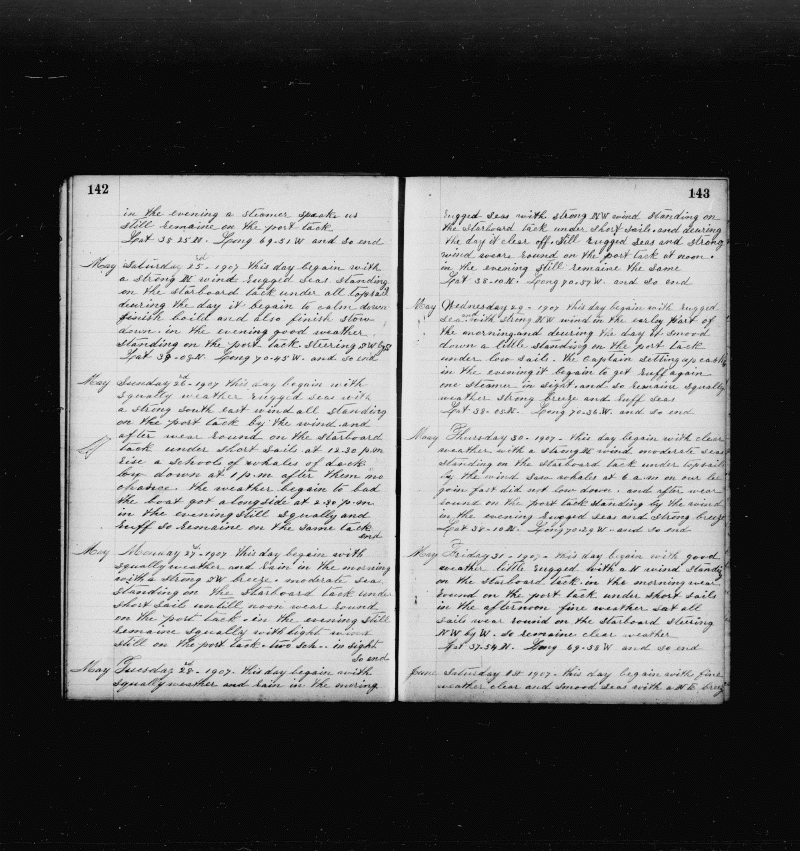 142
in the evening a steamer spoke us
still remaine on the port tack
Lat 38-25 N. Long 69-51 W and so end
May Saturday 25rd 1907 this day begain with
a strong N wind rugged seas standing
on the starboard tack under all topsail
deuring the day it begain to calm down
finish boild and also finish stow
down. in the evening good weather
standing on the port tack steering SW by
Lat 38-08 N. Long 70-45 W. and so end
May Sunday 26rd 1907 this day begain with
squally weather rugged seas with
a strong south east wind all standing
on the port tack by the wind and
after wear round on the starboard
tack under short sails at 12.30 p.m
rise a schools of whales of deck
low down at 1 p.m after them no
chance. the weather begain to bad
the boat got alongside at 2.30 p.m
in the evening still squally and
ruff so remaine on the same tack
end
May Monday 27rd 1907 this day begain with
squally weather and rain in the morning
with a strong SW breeze. moderate sea
standing on the starboard tack under
short sail untill noon wear round
on the port tack. in the evening still
remaine squally with light wind
still on the port tack. two sch. in sight
so end
May Tuesday 28rd 1907. this day begain with
squally weather and rain in the moring
143
rugged seas with strong NW wind standing on
the starboard tack under short sails. and deuring
the day it clear off. still rugged seas and strong
wind weare round on the port tack at noon.
in the evening still remaine the same
Lat 38-10 N. Long 70-57 W. and so end
May Wednesday 29-1907 this day begain with rugged
sea and with strong NW wind in the early part of
the morning and deuring the day it smood
down a little standing on the port tack
under low sails. the Captain setting up cask
in the evening it begain to get ruff again
one steamer in sight. and so remaine squally
weather strong breeze and ruff seas
Lat 38-05 N. Long 70-36 W. and so end
May Thursday 30-1907. this day begain with clear
weather with a strong N wind moderate seas
standing on the starboard tack under topsails
by the wind saw whales at 6 a m on our lee
goin fast did not low down. and after wear
round on the port tack standing by the wind
in the evening rugged seas and strong breeze
Lat 38-10 N. Long 70-29 W. and so end
May Friday 31-1907. this day begain with good
weather little rugged with a N wind standing
on the starboard tack in the morning wear
round on the port tack under short sails
in the afternoon fine weather sat all
sails wear round on the starboard steering
NW by W. so remaine clear weather
Lat 37-54 N. Long 69-38 W and so end
June Saturday 1st 1907. this day begain with fine
weather clear and smood seas with a N E breeze